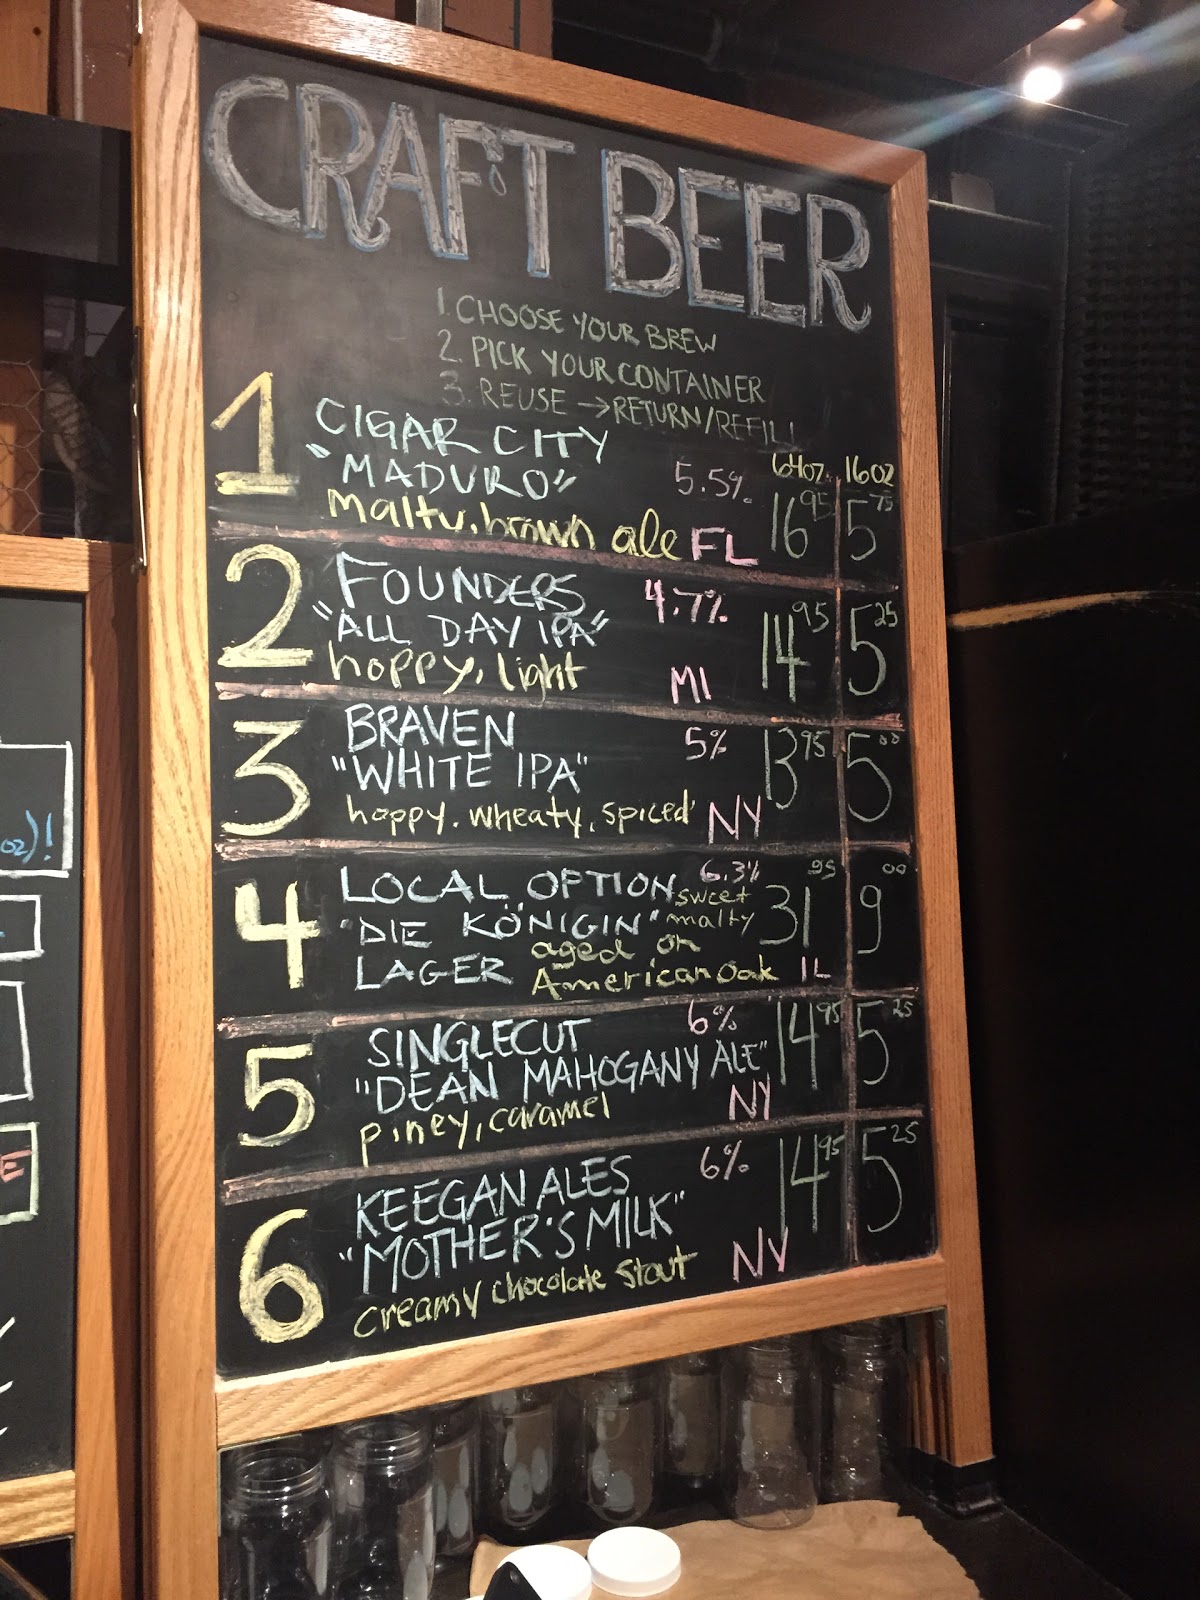 CRAFT BEER
1. CHOOSE YOUR BREW
2. PICK YOUR CONTAINER
3. REUSE → RETURN/REFILL
64oz. 16oz
1 CIGAR CITY
"MADURO" 5.5% 16 95 5 75
Malty, brown ale FL
2 FOUNDERS 4.7%
"ALL DAY IPA" 14 95 5 25
hoppy, light MI
3 BRAVEN 5% 13 95 5 00
"WHITE IPA"
hoppy. wheaty, spiced NY
4 LOCAL OPTION 6.3% 31 95 9 00
sweet
"DIE KÖNIGIN" malty
aged on
LAGER American Oak IL
5 SINGLECUT 6% 14 95 5 25
"DEAN MAHOGANY ALE"
piney, caramel NY
6 KEEGAN ALES 6% 14 95 5 25
"MOTHER'S MILK"
creamy chocolate stout NY
oz)!
E